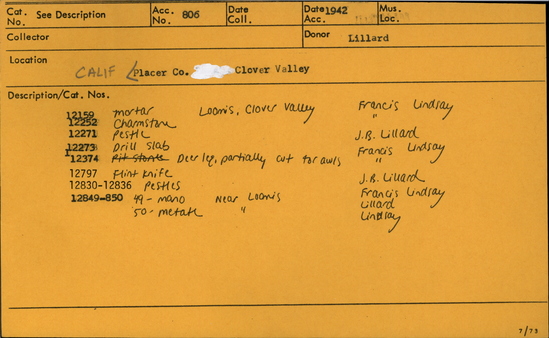 Cat. No. See Description Acc. No. 806 Date Coll. Date Acc. 1942 Mus. Loc.
Collector Donor Lillard
Location CALIF Placer Co. Clover Valley
Description/Cat. Nos.
12159 mortar Loomis, Clover Valley Francis Lindsay
12252 Charmstone "
12271 Pestle J.B. Lillard
12273 Drill slab Francis Lindsay
12374 Pit stones Deer leg, partially cut for awls "
12797 Flint knife J.B. Lillard
12830-12836 Pestles Francis Lindsay
12849-850 49 - mano Near Loomis Lillard
50 - metate " Lindsay
7/73